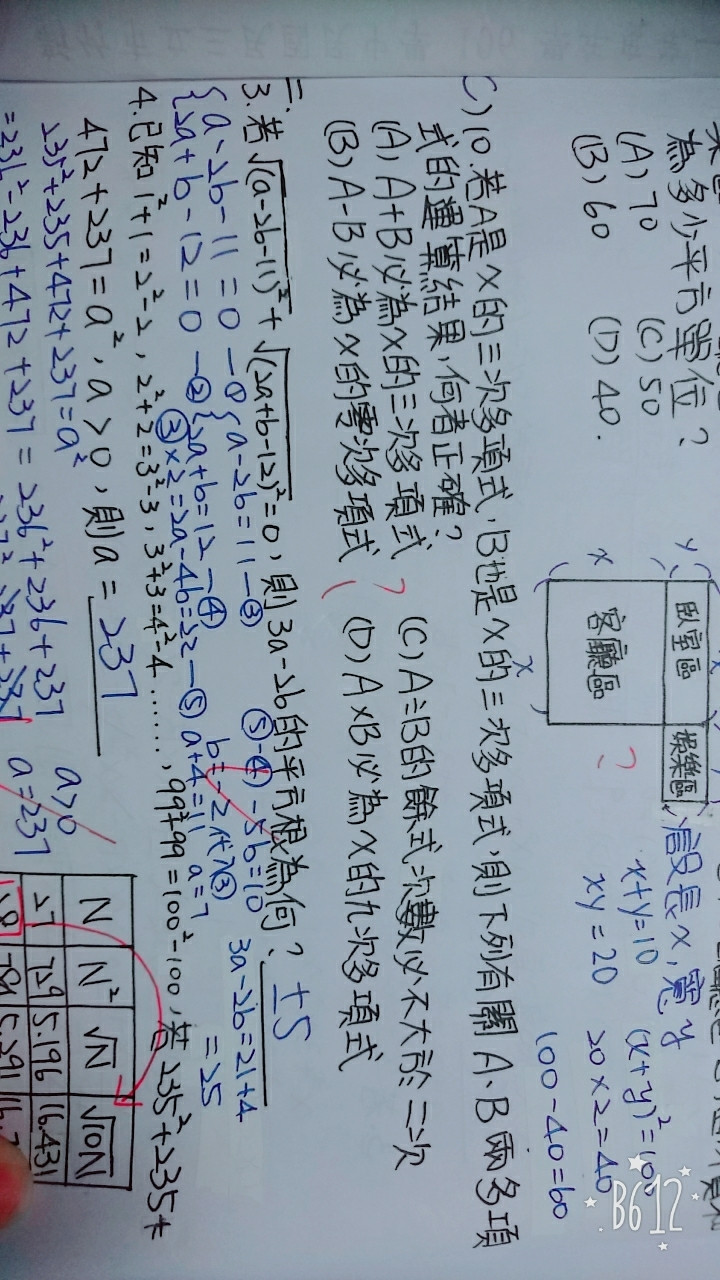 為多少平方單位?
(A) 70 (C) 50
(B) 60 (D) 40.
臥室區
娛樂區
客廳區
y
x
x
設長x,寬y
x+y=10
xy=20
(x+y)²=100
20×2=40
100-40=60
C) 10.若A是x的三次多項式,B也是x的三次多項式,則下列有關A、B兩多項
式的運算結果,何者正確?
(A) A+B必為x的三次多項式 (C) A÷B的餘式次數必不大於二次
(B) A-B必為x的零次多項式 (D) A×B必為x的九次多項式
二、
3.若√(a-2b-11)²+√(2a+b-12)²=0,則3a-2b的平方根為何? ±5
{a-2b-11=0 —① {a-2b=11 —③ ⑤-④ -5b=10 3a-2b=21+4
{2a+b-12=0 —② {2a+b=12 —④ b=-2代入③ =25
③×2=2a-4b=22 —⑤ a+4=11 a=7
4.已知1²+1=2²-2,2²+2=3²-3,3²+3=4²-4……,99²+99=100²-100,若235²+235+
472+237=a²,a>0,則a= 237
235²+235+472+237=a²
=236²-236+472+237=236²+236+237
a>0
a=237
N N² √N √10N
27 729 5.196 16.431
28 784 5.291
B612